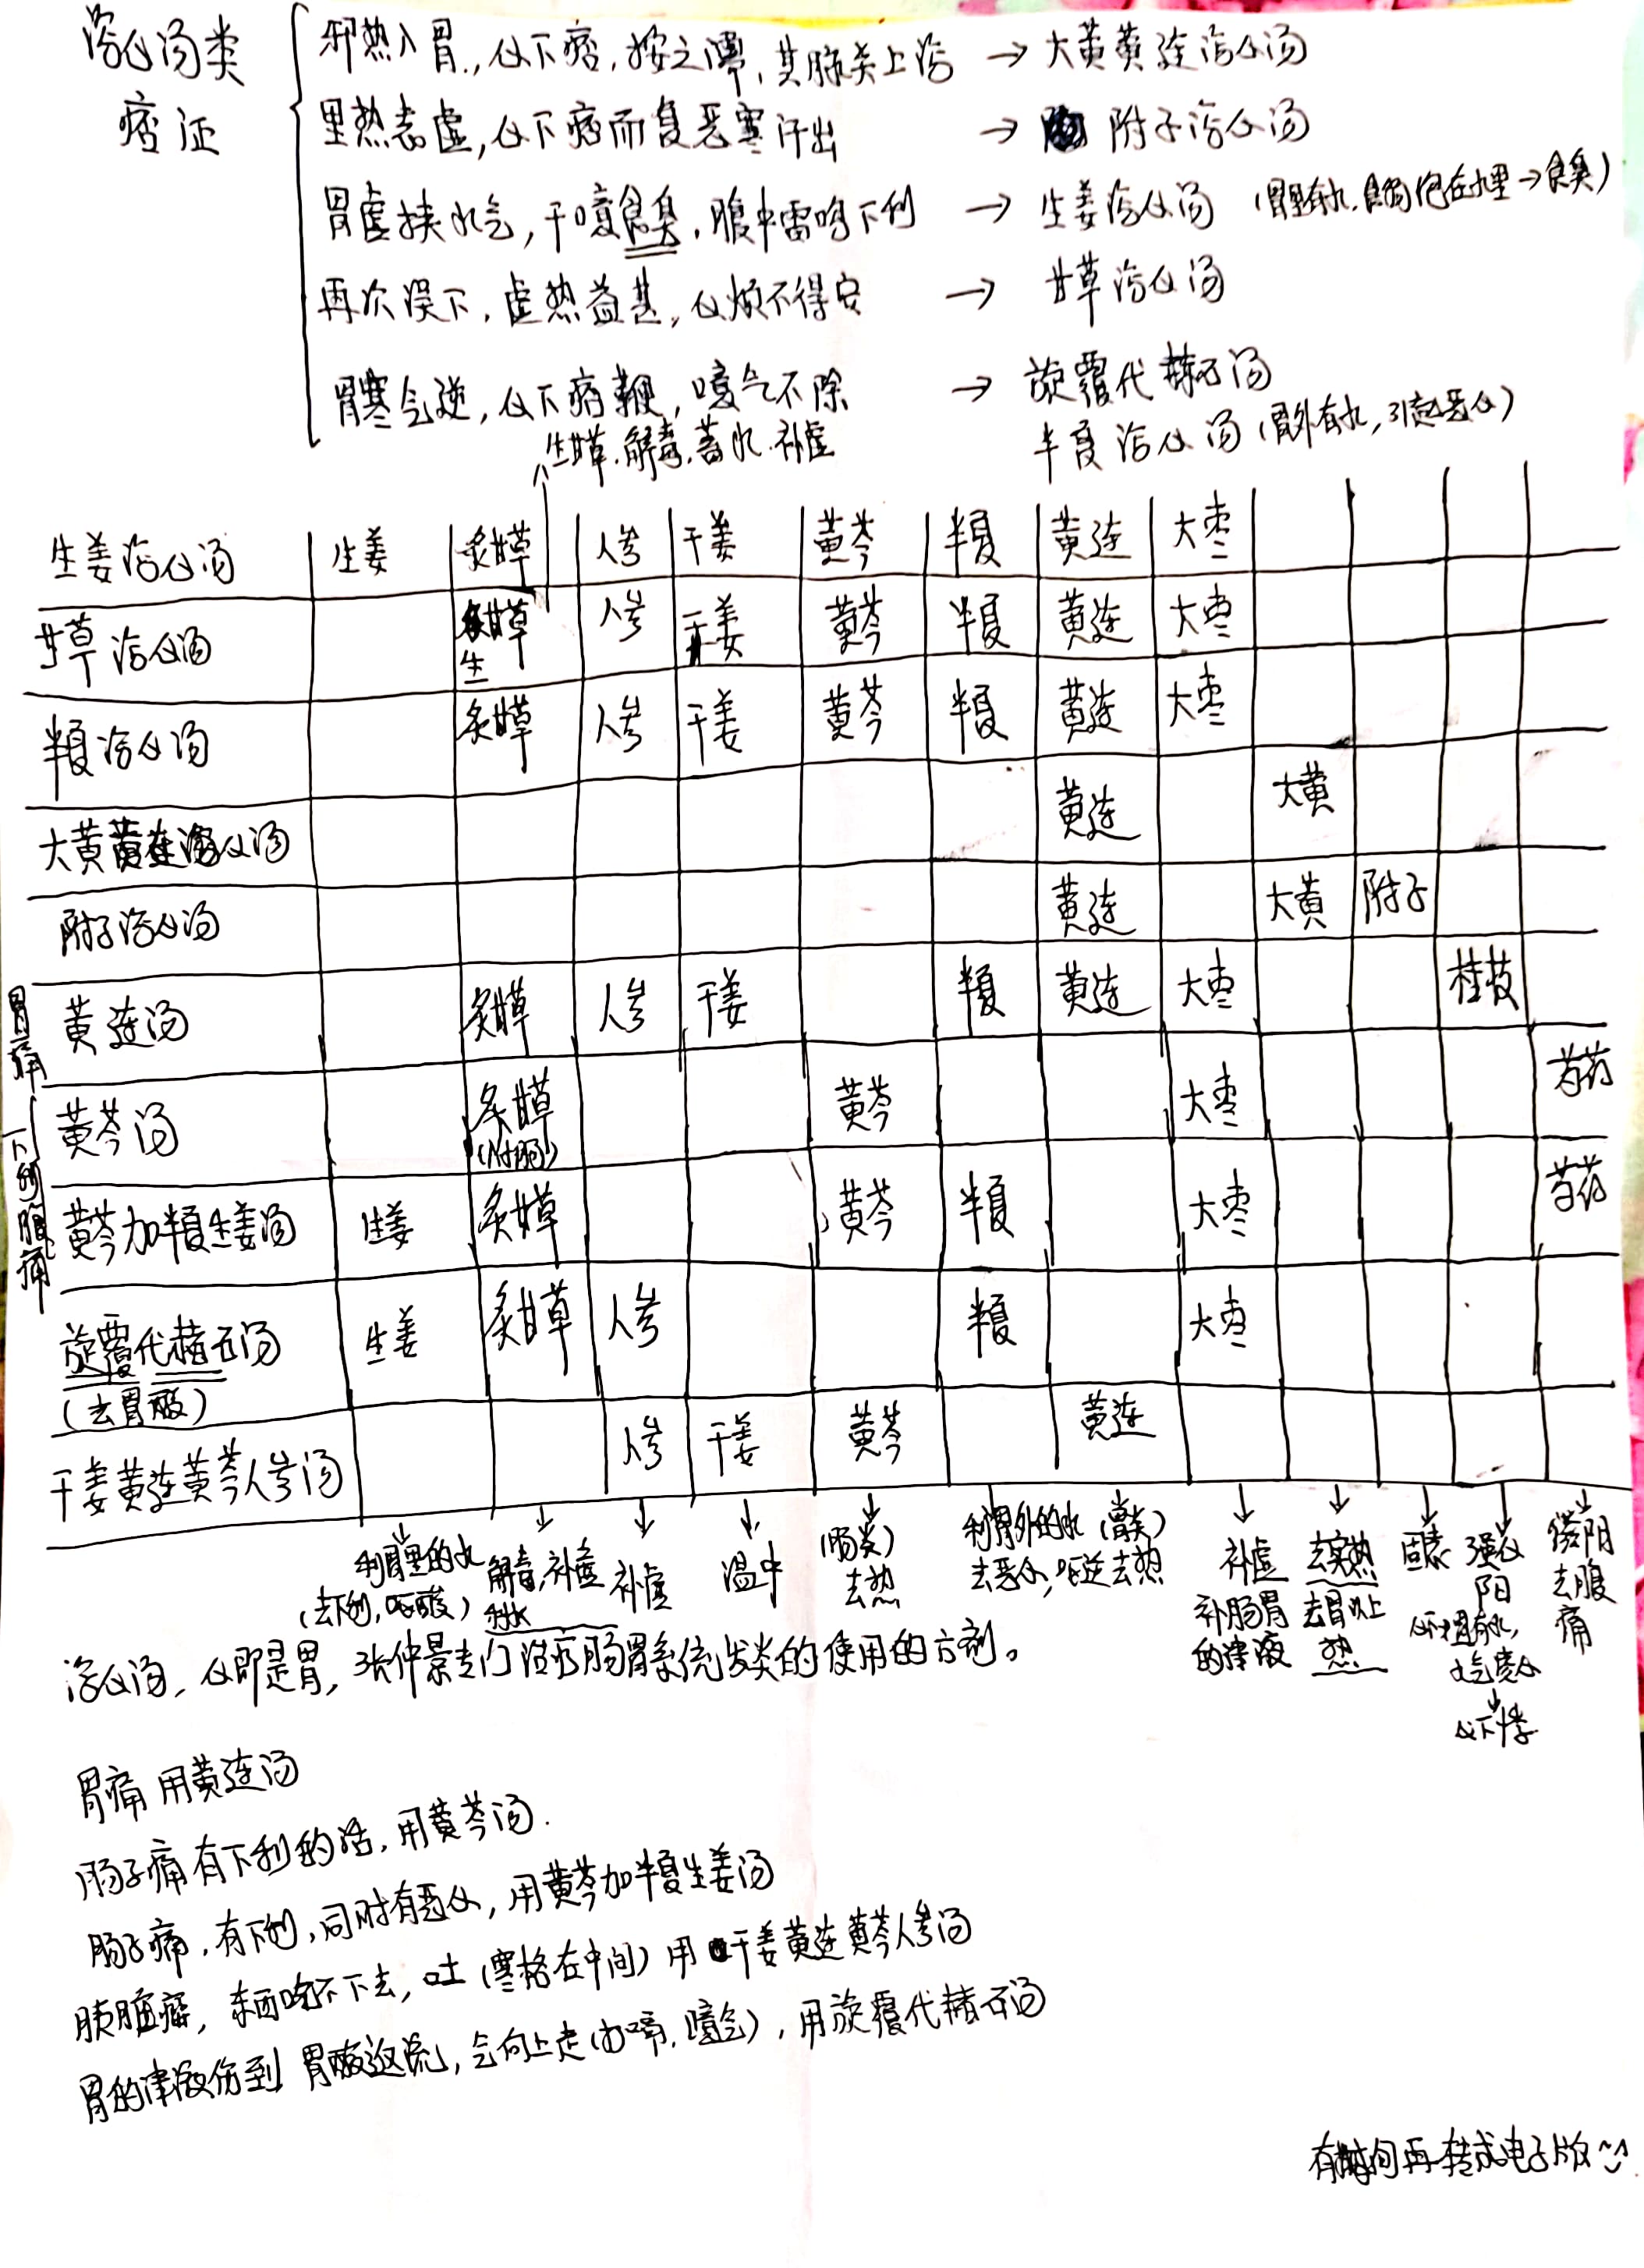 泻心汤类
痞证
邪热入胃,心下痞,按之濡,其脉关上浮 → 大黄黄连泻心汤
里热表虚,心下痞而复恶寒汗出 → 附子泻心汤
胃虚挟水气,干噫食臭,腹中雷鸣下利 → 生姜泻心汤 (胃里有水,食物泡在水里→食臭)
再次误下,虚热益甚,心烦不得安 → 甘草泻心汤
胃寒气逆,心下痞鞕,噫气不除 → 旋覆代赭石汤
半夏泻心汤(胃外有水,引起恶心)
生甘草.解毒.蓄水.补虚
生姜泻心汤 生姜 炙甘草 人参 干姜 黄芩 半夏 黄连 大枣
甘草泻心汤 炙甘草 人参 干姜 黄芩 半夏 黄连 大枣
生
半夏泻心汤 炙甘草 人参 干姜 黄芩 半夏 黄连 大枣
大黄黄连泻心汤 黄连 大黄
附子泻心汤 黄连 大黄 附子
胃痛
黄连汤 炙甘草 人参 干姜 半夏 黄连 大枣 桂枝
下利腹痛
黄芩汤 炙甘草 黄芩 大枣 芍药
黄芩加半夏生姜汤 生姜 炙甘草 黄芩 半夏 大枣 芍药
旋覆代赭石汤 生姜 炙甘草 人参 半夏 大枣
(去胃酸)
干姜黄连黄芩人参汤 人参 干姜 黄芩 黄连
利胃里的水
(去下利,呕酸)
解毒,补虚
利水
补虚
温中
(肠炎)
去热
利胃外的水
去恶心,呕逆
(胃炎)
去热
补虚
补肠胃
的津液
去实热
去胃以上
热
固表
强心
阳
心下悸
阴
去腹
痛
泻心汤,心即是胃,张仲景专门治疗肠胃系统发炎的使用的方剂。
胃痛 用黄连汤
肠子痛有下利的话,用黄芩汤.
肠子痛,有下利,同时有恶心,用黄芩加半夏生姜汤
胰脏癌,东西吃不下去,吐(寒格在中间)用干姜黄连黄芩人参汤
胃的津液伤到 胃酸返流,气向上走(力嗝,噫气),用旋覆代赭石汤
有时间再转成电子版